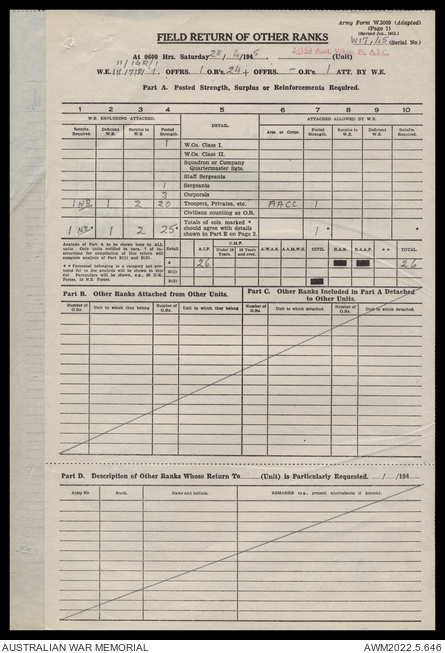 Army Form W.3009 (Adapted)
(Page 1)
(Revised Jan., 1943.)
W17,45 (Serial No.)
FIELD RETURN OF OTHER RANKS
At 0600 Hrs. Saturday 28/4/1945 (Unit)
W.E. OFFRS. 1 O.R's. 24 + OFFRS. — O.R's. 1 ATT. BY W.E.
Part A. Posted Strength, Surplus or Reinforcements Required.
1 2 3 4 5 6 7 8 9 10
W.E. EXCLUDING ATTACHED. ATTACHED ALLOWED BY W.E.
Reinfts. Required. Deficient W.E. Surplus to W.E. Posted Strength. DETAIL. Arm or Corps. Posted Strength. Surplus to W.E. Deficient W.E. Reinfts. Required.
1 W.Os. Class I.
W.Os. Class II.
Squadron or Company
Quartermaster Sgts.
Staff Sergeants
1 Sergeants
3 Corporals
1 NR 1 2 20 Troopers, Privates, etc. AACC 1
Civilians counting as O.R.
1 NR* 1 2 25* Totals of cols. marked * should agree with details shown in Part E on Page 2. 1*
Analysis of Part A to be shown here by ALL Units. Only units entitled to para. 7 of instructions for compilation of this return will complete analysis of Part B(1) and B(2).
Detail A.I.F. C.M.F. Under 19 Years. 19 Years and over. A.W.A.S. A.A.M.W.S. CIVIL R.A.N. R.A.A.F. ** TOTAL.
A 26 26
B(1)
B(2)
Part B. Other Ranks Attached from Other Units.
Part C. Other Ranks Included in Part A Detached to Other Units.
Number of O.Rs. Unit to which they belong Number of O.Rs. Unit to which they belong. Number of O.Rs. Unit to which detached. Number of O.Rs. Unit to which detached.
Part D. Description of Other Ranks Whose Return To (Unit) is Particularly Requested. / /194
Army No Rank. Name and Initials. REMARKS (e.g., present whereabouts if known).
AUSTRALIAN WAR MEMORIAL AWM2022.5.646